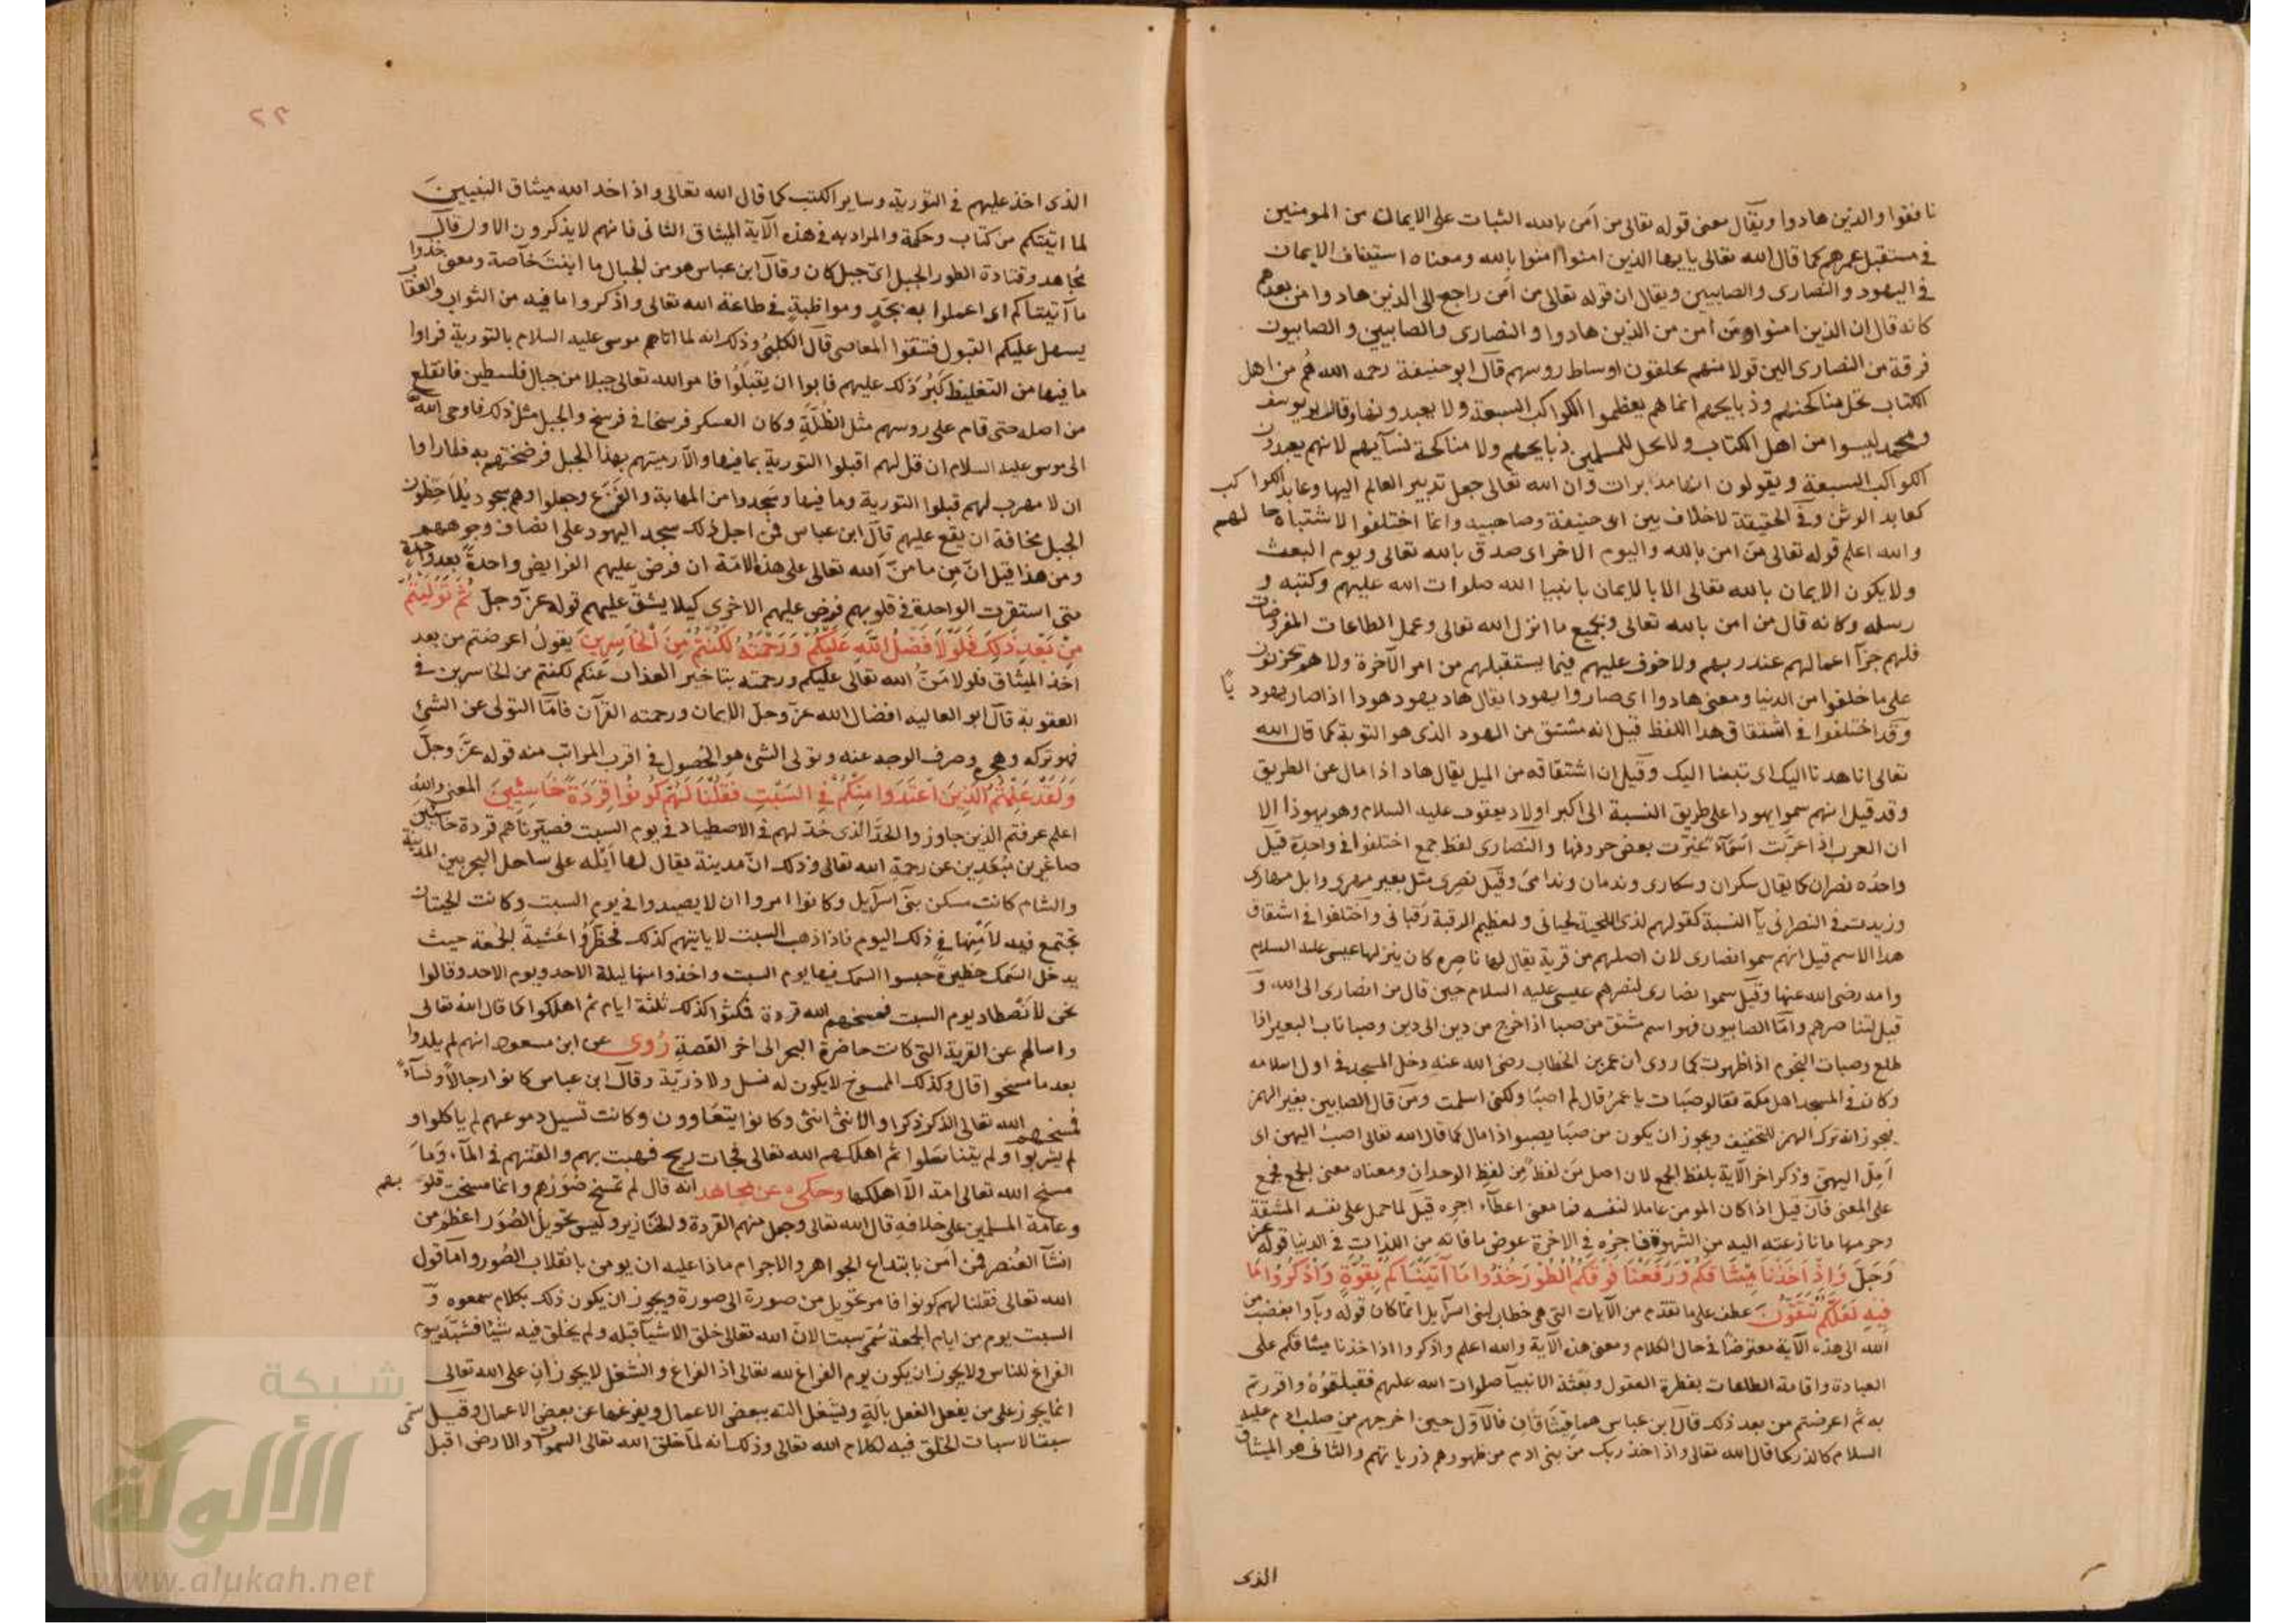 نافقوا والذين هادوا ويقال معنى قوله تعالى من آمن بالله الثبات على الايمان من المومنين
في مستقبل عمرهم كما قال الله تعالى يايها الذين امنوا امنوا بالله ومعناه استيناف الايمان
في اليهود والنصارى والصابيين ويقال ان قوله تعالى من آمن راجع الى الذين هادوا من بعدهم
كانه قال ان الذين امنوا ومن امن من الذين هادوا والنصارى والصابيين والصابيون
فرقة من النصارى الين قولا منهم يحلقون اوساط روسهم قال ابو حنيفة رحمه الله هم من اهل
الكتاب تحل مناكحتهم وذبايحهم انما هم يعظموا الكواكب السبعة ولا يعبدونها وقال ابو يوسف
ومحمد ليسوا من اهل الكتاب ولا تحل للمسلمين ذبايحهم ولا مناكحة نسآيهم لانهم يعبدون
الكواكب السبعة ويقولون انها مدبرات وان الله تعالى جعل تدبير العالم اليها وعابد الكواكب
كعابد الوثن وفي الحقيقة لا خلاف بين ابى حنيفة وصاحبيه وانما اختلفوا لاشتباه حالهم
والله اعلم قوله تعالى من امن بالله واليوم الاخر اى صدق بالله تعالى ويوم البعث
ولا يكون الايمان بالله تعالى الا بالايمان بانبيا الله صلوات الله عليهم وكتبه و
رسله وكانه قال من امن بالله تعالى وبجميع ما انزل الله تعالى وعمل الطاعات المفروضات
فلهم جزآ اعمالهم عند ربهم ولا خوف عليهم فيما يستقبلهم من امر الآخرة ولا هم يحزنون
على ما خلفوا من الدنيا ومعنى هادوا اى صاروا يهودا يقال هاد يهود هودا اذا صار يهوديًا
وقد اختلفوا في اشتقاق هذا اللفظ قيل انه مشتق من الهود الذى هو التوبة كما قال الله
تعالى انا هدنا اليك اى تبنا اليك وقيل ان اشتقاقه من الميل يقال هاد اذا مال عن الطريق
وقد قيل انهم سموا يهودا على طريق النسبة الى اكبر اولاد يعقوب عليه السلام وهو يهوذا الا
ان العرب اذا عرّبت اسمآءً غيّرت بعض حروفها والنصارى لفظ جمع اختلفوا في واحدة قيل
واحده نصران كما يقال سكران وسكارى وندمان وندامى وقيل نصرى مثل بعير مهرى وابل مهارى
وزيدت في النصرانى يآ النسبة كقولهم لذى اللحية لحيانى ولعظيم الرقبة رقبانى واختلفوا في اشتقاق
هذا الاسم قيل انهم سموا نصارى لان اصلهم من قرية يقال لها ناصره كان ينزلها عيسى عليه السلام
وامه رضى الله عنها وقيل سموا نصارى لنصرهم عيسى عليه السلام حين قال من انصارى الى الله و
قيل لتناصرهم وامّا الصابيون فهو اسم مشتق من صبا اذا خرج من دين الى دين وصبا ناب البعير اذا
طلع وصبات النجوم اذا ظهرت كما روى ان عمر بن الخطاب رضى الله عنه دخل المسجد في اول اسلامه
وكان في المسجد اهل مكة فقالو صبات يا عمر قال لم اصبا ولكنى اسلمت ومن قال الصابين بغير الهمز
فيجوز انه ترك الهمز للتخفيف ويجوز ان يكون من صبا يصبوا اذا مال كما قال الله تعالى اصب اليهن اى
امل اليهن وذكر اخر الآية بلفظ الجمع لان اصل من لفظ من لفظ الوحدان ومعناه معنى الجمع فجمع
على المعنى فان قيل اذا كان المومن عاملا لنفسه فما معنى اعطآء اجره قيل لما حمل على نفسه المشقة
وحرمها ما نازعته اليه من الشهوة فاجره في الاخرة عوض ما فاته من اللذات في الدنيا قوله عز
وجل وَاِذْ اَخَذْنَا مِيثَاقَكُمْ وَرَفَعْنَا فَوْقَكُمُ الطُّورَ خُذُوا مَا آتَيْنَاكُمْ بِقُوَّةٍ وَاذْكُرُوا مَا
فِيهِ لَعَلَّكُمْ تَتَّقُونَ عطف على ما تقدم من الآيات التي هى خطاب لبنى اسرآيل انما كان قوله وبآوا بغضب من
الله الى هذه الآية معترضًا في حال الكلام ومعنى هذه الآية والله اعلم واذكروا اذ اخذنا ميثاقكم على
العبادة واقامة الطاعات بفطرة العقول وبعثة الانبيآ صلوات الله عليهم فقبلتموه واقررتم
به ثم اعرضتم من بعد ذلك قال ابن عباس هما ميثاقان فالاول حين اخرجهم من صلب ادم عليه
السلام كالذر كما قال الله تعالى واذ اخذ ربك من بنى ادم من ظهورهم ذرياتهم والثانى هو الميثاق
الذى
٢٣
الذى اخذ عليهم في التورية وساير الكتب كما قال الله تعالى واذ اخذ الله ميثاق النبيينَ
لما اتيتكم من كتاب وحكمة والمراد به في هذه الآية الميثاق الثانى فانهم لا يذكرون الاول قال
مجاهد وقتادة الطور الجبل اىّ جبل كان وقال ابن عباس هو من الجبال ما انبت خآصة ومعنى خذوا
ما آتيناكم اى اعملوا به بجدٍ ومواظبةٍ في طاعة الله تعالى واذكروا ما فيه من الثواب والعقاب
يسهل عليكم القبول فتتقوا المعاصى قال الكلبىُّ وذلك انه لما اتاهم موسى عليه السلام بالتورية فراوا
ما فيها من التغليظ كَبُرَ ذلك عليهم فابوا ان يقبلُوا فامر الله تعالى جبلا من جبال فلسطين فانقلع
من اصله حتى قام على روسهم مثل الظُلَّةِ وكان العسكر فرسخا في فرسخ والجبل مثل ذلك فاوحى الله
الى موسى عليه السلام ان قل لهم اقبلوا التورية بما فيها والّا رميتهم بهذا الجبل فرضختهم به فلما راوا
ان لا مهرب لهم قبلوا التورية وما فيها وسجدوا من المهابة والفزع وجعلوا وهم سجود يلاحظون
الجبل مخافة ان يقع عليهم قال ابن عباس فمن اجل ذلك سجد اليهود على انصاف وجوههم
ومن هذا قيل انّ مِن ما منّ الله تعالى على هذه الامّة ان فرض عليهم الفرايض واحدةً بعد واحدةٍ
متى استقرت الواحدة في قلوبهم فرض عليهم الاخرى كيلا يشقّ عليهم قوله عزّ وجلّ ثُمَّ تَوَلَّيْتُمْ
مِنْ بَعْدِ ذَلِكَ فَلَوْلَا فَضْلُ اللَّهِ عَلَيْكُمْ وَرَحْمَتُهُ لَكُنْتُمْ مِنَ الْخَاسِرِينَ يقولُ اعرضتم من بعد
اخذ الميثاق فلولا مَنُّ الله تعالى عليكم ورحمته بتاخير العذاب عنكم لكنتم من الخاسرين في
العقوبة قال ابو العاليه افضال الله عزّ وجلّ الايمان ورحمته القرآن فامّا التولى عن الشئ
فهو تركه وهجره وصرف الوجه عنه وتولى الشئ هو الحُصول في اقرب المراتب منه قوله عزّ وجلّ
وَلَقَدْ عَلِمْتُمُ الَّذِينَ اعْتَدَوا مِنْكُمْ فِي السَّبْتِ فَقُلْنَا لَهُمْ كُونُوا قِرَدَةً خَاسِئِينَ المعنى والله
اعلم عرفتم الذين جاوزوا الحدّ الذى حُدّ لهم في الاصطياد في يوم السبت فصيّرناهم قردة خاسئين
صاغرين مُبعَدِين عن رحمةِ الله تعالى وذلك انّ مدينة يقال لها اَيله على ساحل البحر بين المدينة
والشام كانت مسكن بنى اسرآيل وكانوا امروا ان لا يصيدوا في يوم السبت وكانت الحيتان
تجتمع فيه لاَمنها في ذلك اليوم فاذا ذهب السبت لا ياتيهم كذلك فحظّرُوا عشيةَ الجمعة حيث
يدخل السَمك حظيرةً حبسوا السمك فيها يوم السبت واخذوا منها ليلة الاحد ويوم الاحد وقالوا
نحن لا نَصْطاد يوم السبت فمسخهم الله قردة فمكثوا كذلك ثلثة ايام ثم اهلكوا كما قال الله تعالى
واسالهم عن القرية التى كانت حاضرة البحر الى اخر القصةِ رُوى عن ابن مسعود انهم لم يلدوا
بعد ما مسخوا قال وكذلك الممسوخ لا يكون له نسل ولا ذريّة وقال ابن عباس كانوا رجالًا ونسآءً
فمسخهم الله تعالى الذكر ذكرا والانثى انثى وكانوا يتعاوون وكانت تسيل دموعهم لم ياكلوا و
لم يشربوا ولم يتناسلوا ثم اهلكهم الله تعالى فجات ريح فهبت بهم والقتهم في المآء وَمَا
مسخ الله تعالى امة الّا اهلكها وحكى عن مجاهد انه قال لم تمسخ صورهم وانما مسخت قلوبهم
وعامة المسلمين على خلافهِ قال الله تعالى وجعل منهم القردة والخنازير وليس تحويلُ الصُوَر اعظم من
انشآ العُنصر فمن آمَن بابتداع الجواهر والاجرام ماذا عليه ان يومن بانقلاب الصُور وامّا قول
الله تعالى فقلنا لهم كونوا فامر تحويل من صورة الى صورة ويجوز ان يكون ذلك بكلام سمعوه و
السبت يوم من ايام الجمعة سُمّى سبتا لانّ الله تعالى خلق الاشيآ قبله ولم يخلق فيه شيئا فشبّه بيوم
الفراغ للناس ولا يجوز ان يكون يوم الفراغ لله تعالى اذ الفراغ والشغل لا يجوزان على الله تعالى
انما يجوز على من يفعل الفعل بآلةٍ ويشغل الته ببعض الاعمال ويفرغها عن بعض الاعمال وقيل سمّى
سبتا لاسبات الخلق فيه لكلام الله تعالى وذلك انه لما خلق الله تعالى السموات والارض اقبل
شبكة
الألوكة
www.alukah.net